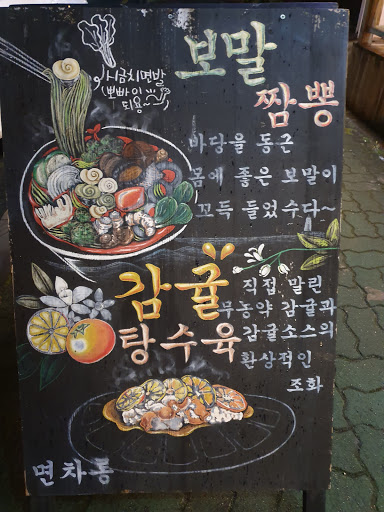 시금치면발
뽀빠이
되용~
보말
짬뽕
바당을 동근
몸에 좋은 보말이
꼬득 들었수다~
감귤
탕수육
직접 말린
무농약 감귤과
감귤소스의
환상적인
조화
면차롱